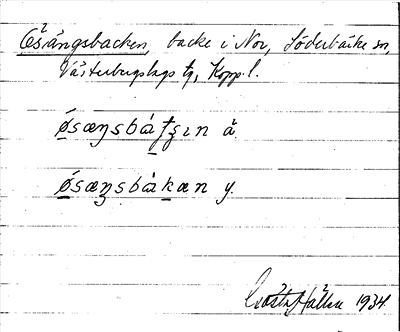 Ösängsbacken, backe i Nor, Söderbärke sn,
Västerbergslags tg, Kopp. l.
ǿsæŋsbáʈʂɪn ä.
ǿsæŋsbákæn y.
Gösta Hallén 1934